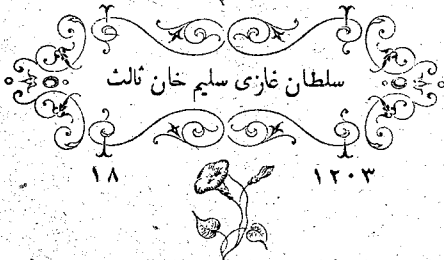 سلطان غازی سلیم خان ثالث
١٢٠٣ ١٨